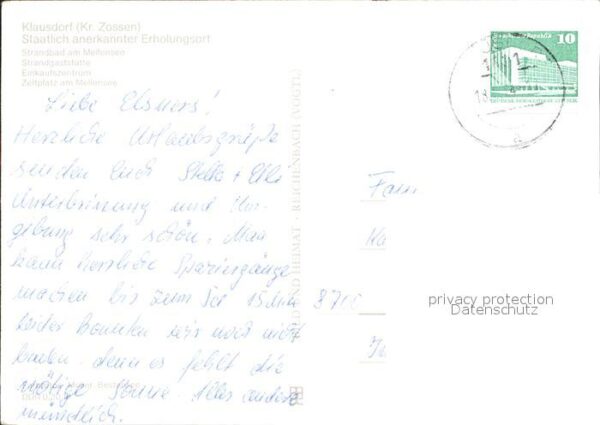 Klausdorf (Kr. Zossen)
Staatlich anerkannter Erholungsort
Strandbad am Mellensee
Strandgaststätte
Einkaufszentrum
Zeltplatz am Mellensee
10
DEUTSCHE DEMOKRATISCHE REPUBLIK
18.
Liebe Elsners!
Herzliche Urlaubsgrüße
senden Euch
Unterbringung und Um-
gebung sehr schön. Man
kann herrliche Spaziergänge
machen bis zum See 15 Min
leider konnten wir noch nicht
baden, denn es fehlt die
nötige Sonne. Alles andere
mündlich.
Fam
8700
BILD UND HEIMAT REICHENBACH (VOGTL)
privacy protection
Datenschutz